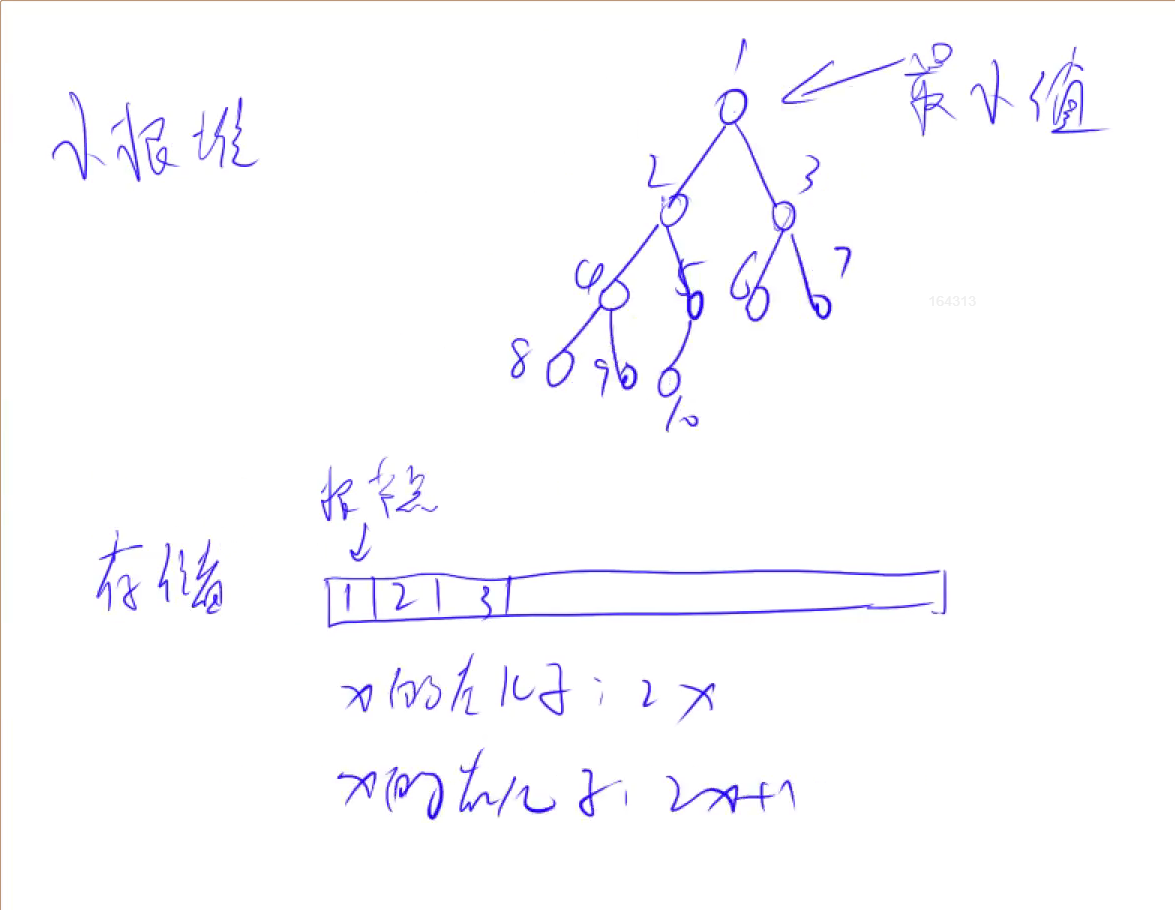 小根堆
最小值
1
2 3
4 5 6 7
8 9 10
164313
根节点
存储
1 2 3
x的左儿子: 2x
x的右儿子: 2x+1